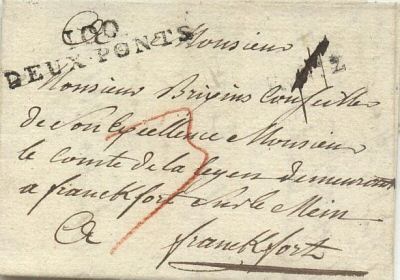 100
DEUX-PONTS
Monsieur
Monsieur Conseiller
de Son Excellence Monsieur
le Comte de la Leyen demeurant
a franckfort sur le Mein
a
franckfort
3